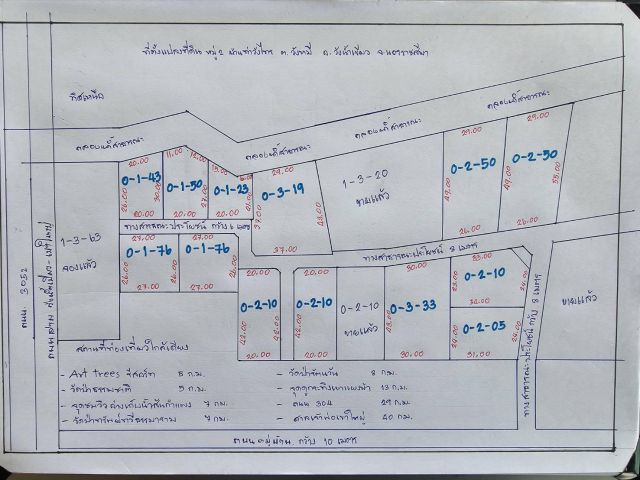 ที่ตั้งแปลงที่ดิน หมู่ 2 บ้านท่าวังไทร ต.วังหมี อ.วังน้ำเขียว จ.นครราชสีมา
ทิศเหนือ
คลองน้ำสาธารณะ
คลองน้ำสาธารณะ
คลองน้ำสาธารณะ
คลองน้ำสาธารณะ
29.00
29.00
20.00
11.00
29.00
0-1-43
0-1-50
0-1-23
0-3-19
1-3-20
ขายแล้ว
0-2-50
0-2-50
26.00
30.00
27.00
37.00
49.00
55.00
20.00
20.00
21.00
26.00
26.00
ทางสาธารณะประโยชน์ กว้าง 6 เมตร
37.00
ทางสาธารณะประโยชน์ 8 เมตร
1-3-63
จองแล้ว
27.00
27.00
0-1-76
0-1-76
26.00
26.00
27.00
27.00
ถนน 3052
20.00
20.00
30.00
0-2-10
0-2-10
0-2-10
ขายแล้ว
0-3-33
0-2-10
0-2-05
42.00
42.00
42.00
20.00
20.00
30.00
31.00
ขายแล้ว
ทางสาธารณะประโยชน์ กว้าง 8 เมตร
สถานที่ท่องเที่ยวใกล้เคียง
- Art trees รีสอร์ท 5 ก.ม.
- วัดป่าธรรมชาติ 5 ก.ม.
- จุดชมวิวอ่างเก็บน้ำลำสำแพง 7 กม.
- 8 ก.ม.
- จุดดูกระทิงเขาแผงม้า 13 ก.ม.
- ถนน 304 29 ก.ม.
- ศาลเจ้าพ่อเขาใหญ่ 40 กม.
ถนนหมู่บ้าน กว้าง 10 เมตร